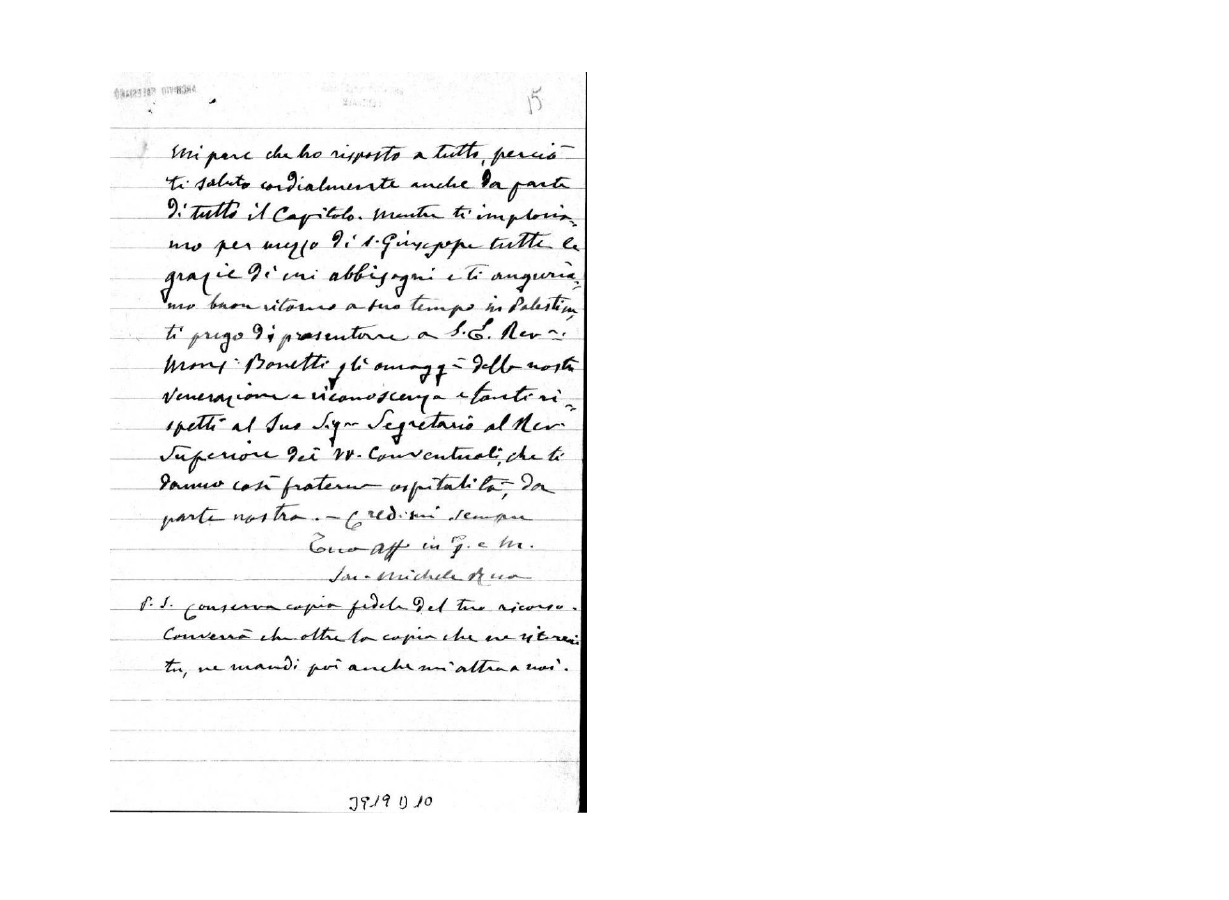 15
Mi pare che ho risposto a tutto, perciò
ti saluto cordialmente anche da parte
di tutto il Capitolo. Mentre ti imploria-
mo per mezzo di S. Giuseppe tutte le
grazie di cui abbisogni e ti auguria-
mo buon ritorno a suo tempo in Palestina,
ti prego di presentare a S. E. Rev.
Mons. Bonetti gli omaggi della nostra
venerazione e riconoscenza e tanti ri-
spetti al Suo Sigr Segretario al Rev
Superiore dei VV. Conventuali, che ti
danno così fraterna ospitalità, da
parte nostra. - Credimi sempre
Tuo aff in G. e M.
Sac. Michele Rua
P. S. Conserva copia fedele del tuo ricorso.
Converrà che oltre la copia che ne riterrai
tu, ne mandi poi anche un'altra a noi.
3919 D 10